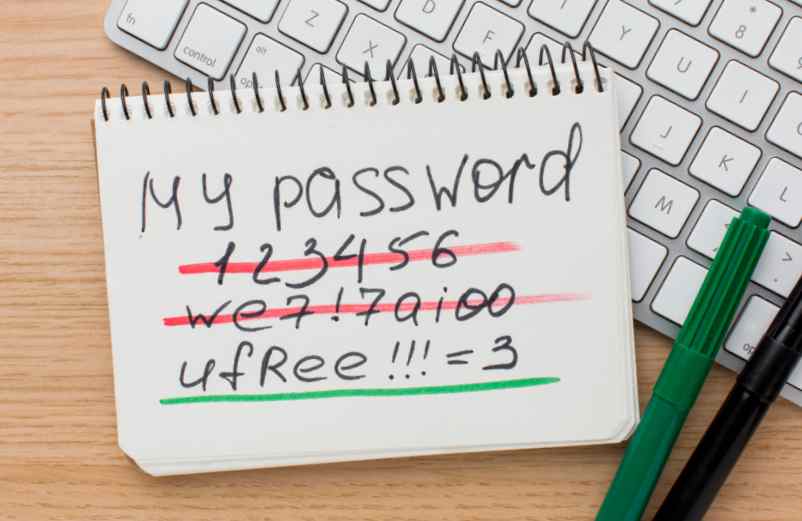 fn
control
alt
Z
X
D
F
T
Y
U
I
*
8
J
K
L
M
>
.
My password
123456
we7!7aioo
ufRee!!!=3